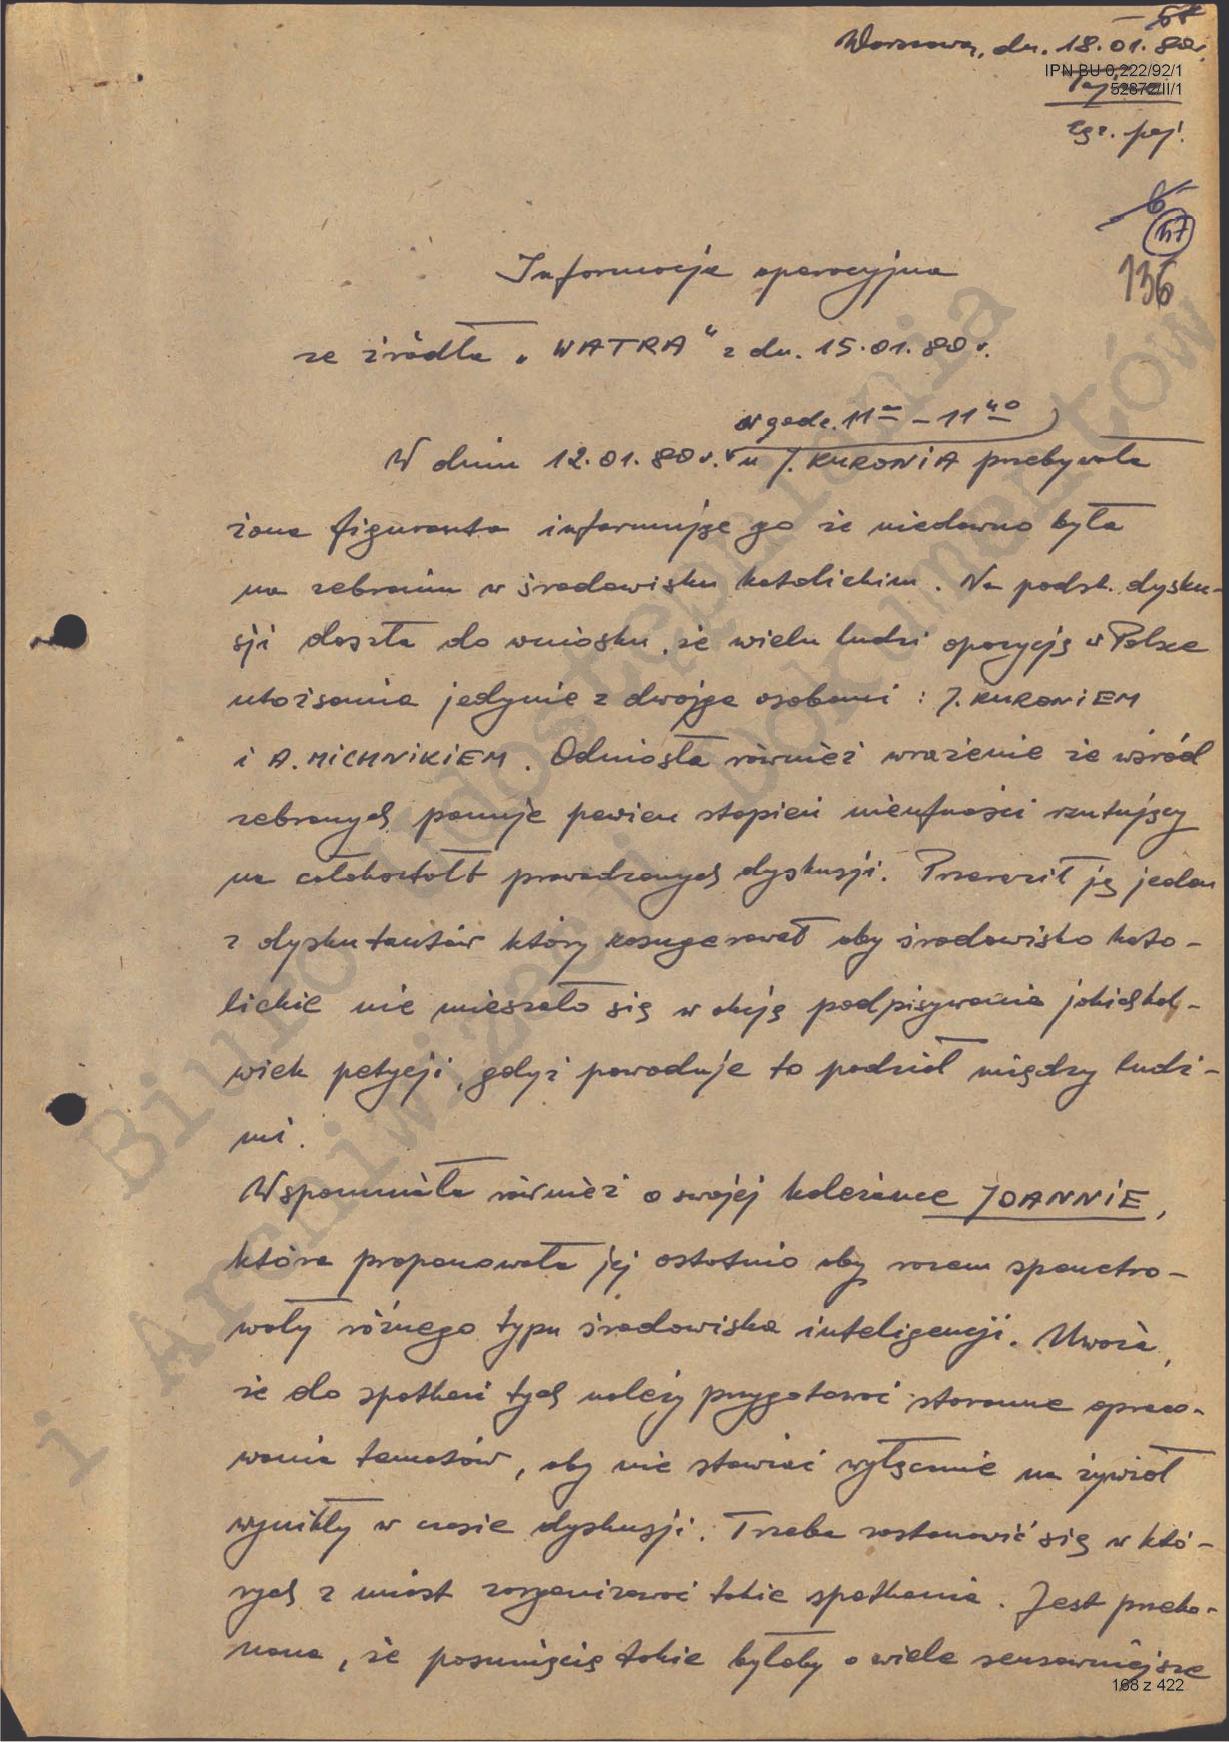 Warszawa, dn. 18.01.80r.
IPN BU 0 222/92/1
52872/II/1
Tajne
Egz. poj.
6
136
Informacja operacyjna
ze źródła „WATRA" z dn. 15.01.80r.
w godz. 11⁰⁰ – 11⁴⁰
W dniu 12.01.80r. u J. KURONiA przebywała
żona figuranta informując go że niedawno była
na zebraniu w środowisku katolickim. Na podst. dysku-
sji doszła do wniosku, że wielu ludzi opozycję w Polsce
utożsamia jedynie z dwojga osobami : J. KURONiEM
i A. MiCHNiKiEM. Odniosła również wrażenie że wśród
zebranych panuje pewien stopień nieufności rzutujący
na całokształt prowadzonych dyskusji. Przeraził ją jeden
z dyskutantów który zasugerował aby środowisko kato-
lickie nie mieszało się w akcję podpisywania jakichkol-
wiek petycji, gdyż powoduje to podział między ludź-
mi.
Wspomniała również o swojej koleżance JOANNiE,
która proponowała jej ostatnio aby razem spenetro-
wały różnego typu środowiska inteligencji. Uważa,
że do spotkań tych należy przygotować staranne opraco-
wania tematów, aby nie stawiać wyłącznie na żywioł
wynikły w czasie dyskusji. Trzeba zastanowić się w któ-
rych z miast zorganizować takie spotkania. Jest przeko-
nana, że posunięcie takie byłoby o wiele sensowniejsze
168 z 422
Biuro Udostępniania
i Archiwizacji Dokumentów